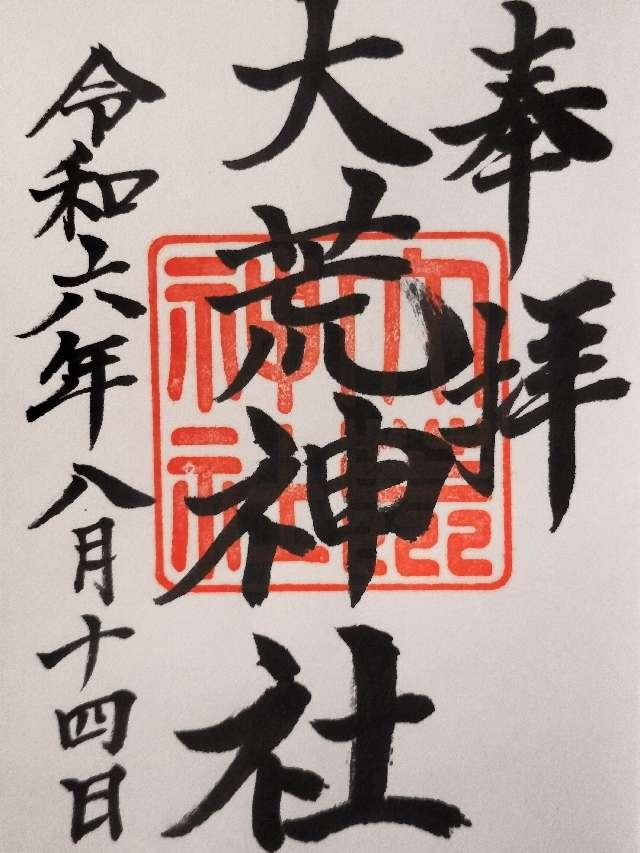 奉拝
大荒神社
令和六年八月十四日